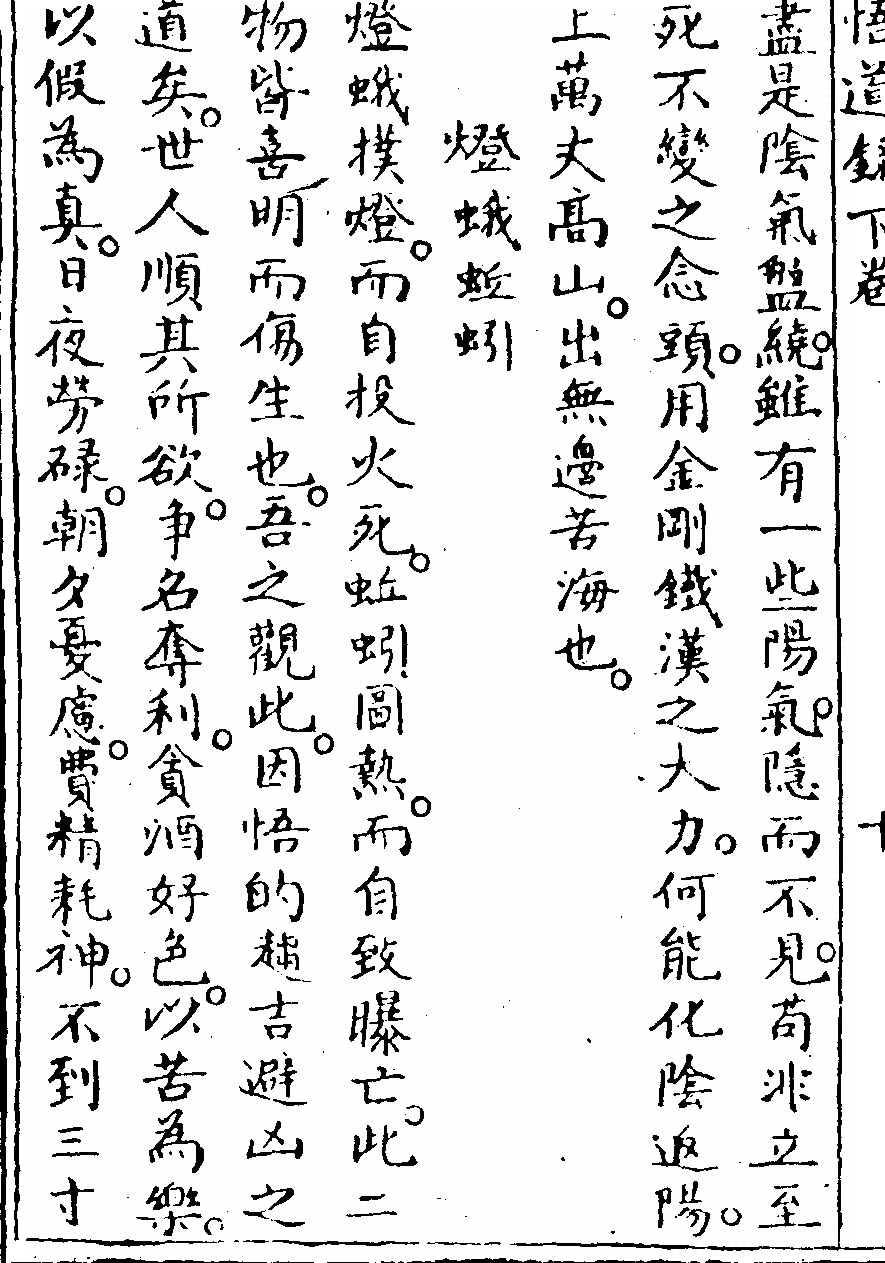 悟道錄下卷 十
盡是陰氣盤繞。雖有一些陽氣。隱而不見。苟非立至
死不變之念頭。用金剛鐵漢之大力。何能化陰返陽。
上萬丈高山。出無邊苦海也。
燈蛾蚯蚓
燈蛾撲燈。而自投火死。蚯蚓圖熱。而自致曝亡。此二
物皆喜明而傷生也。吾之觀此。因悟的趨吉避凶之
道矣。世人順其所欲。爭名奪利。貪酒好色。以苦為樂。
以假為真。日夜勞碌。朝夕憂慮。費精耗神。不到三寸